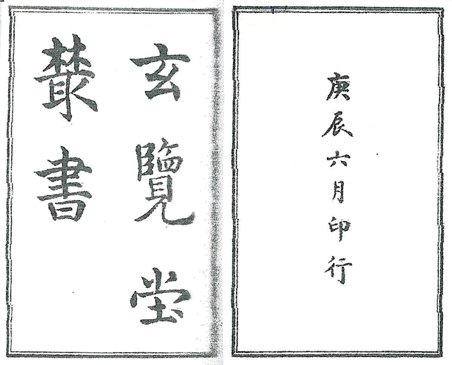 玄覽堂
叢書
庚辰六月印行